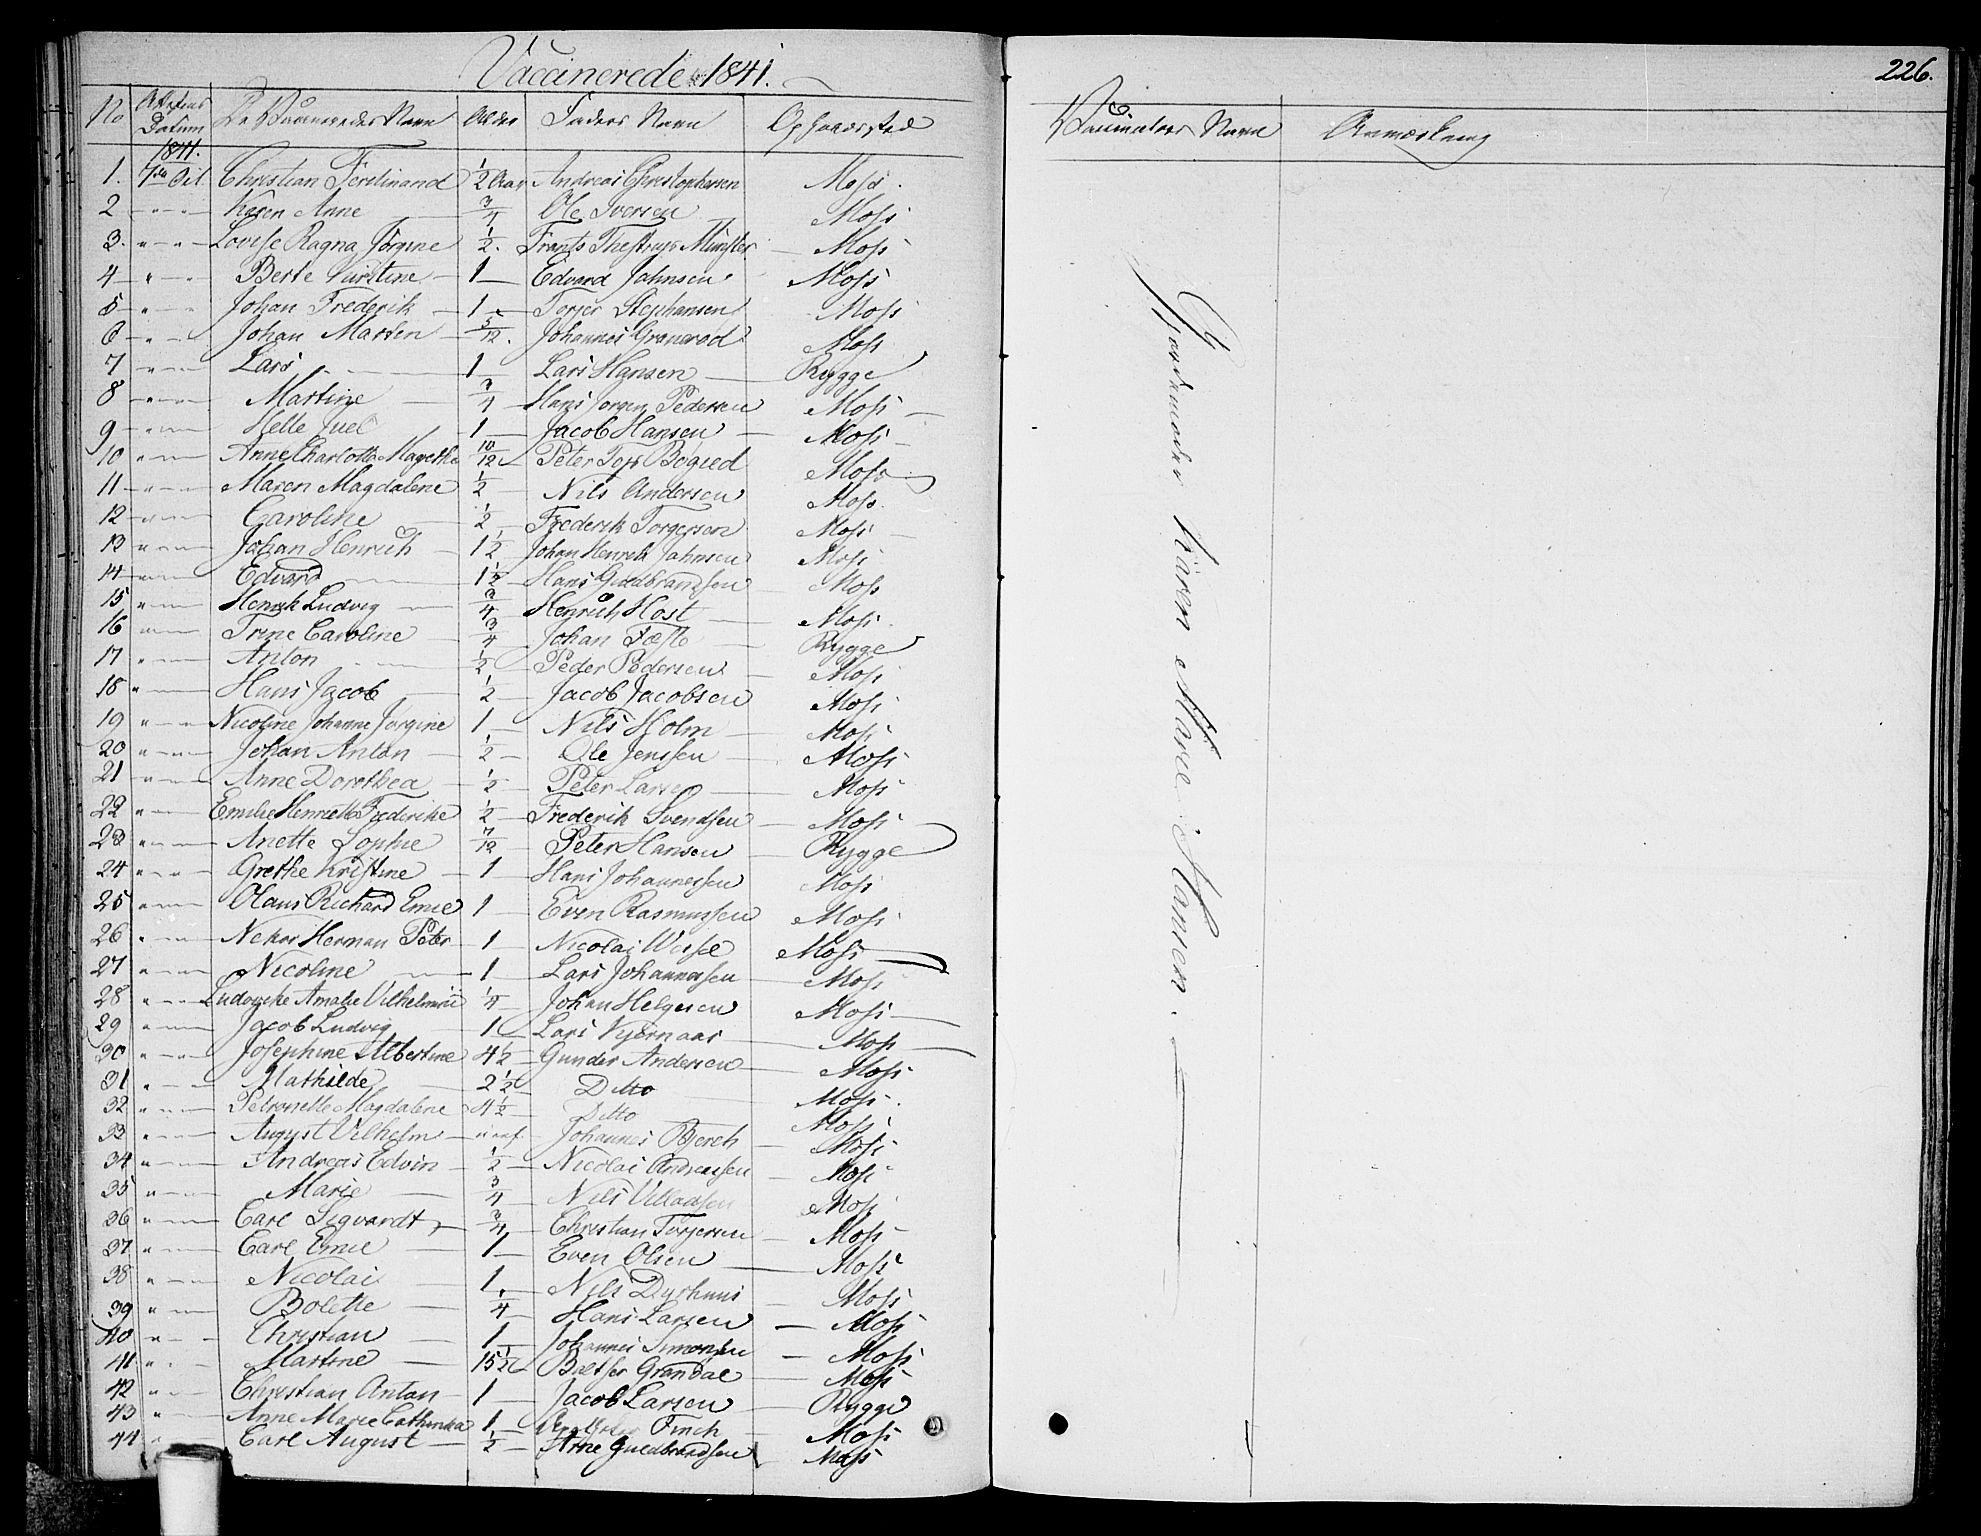 Vaccinerede 1841.
226.
No Attestens Datum De Vaccineredes Navn Alder Faders Navn Opholdssted Vaccinateurs Navn Anmærkning
1841.
1. 7de Oct Christian Ferdinand 1/2 Aar Andreas Christophersen Moss.
2 " Karen Anne 3/4 Ole Iversen Moss
3. " Lovise Ragna Jørgine 1/2. Frants Thestrup Münster Moss
4 " Berte Kirstine 1 Edvard Johnsen Moss
5 " Johan Frederik 1 Torjer Stephansen Moss
6 " Johan Marten 5/12. Johannes Grønerød Moss
7 " Lars 1 Lars Hansen Rygge
8 " Martine 3/4 Hans Jørgen Pedersen Moss
9 " Helle Juel 1 Jacob Hansen Moss
10 " Anne Charlotta Magrethe 10/12 Peter Bogsed Moss
11 " Maren Magdalene 1/2 Nils Andersen Moss.
12 " Caroline 1/2 Frederik Torgersen Moss
13 " Johan Henrich 1 1/2 Johan Henrik Johnsen Moss
14 " Edvard 1 1/2 Hans Guldbrandsen Moss
15 " Henrik Ludvig 3/4 Henrich Høst Moss.
16 " Trine Caroline 3/4 Johan Fæste Rygge
17 " Anton 1/2 Peder Pedersen Moss
18 " Hans Jacob 1/2 Jacob Jacobsen Moss
19 " Nicoline Johanne Jørgine 1 Nils Holm Moss
20 " Johan Anton 1/2 Ole Jenssen Moss
21 " Anne Dorothea 1/2 Peter Larsen Moss
22 " Emilie Henriette Frederikke 1/2 Frederik Svendsen Moss
23 " Anette Sophie 7/12 Peter Hansen Rygge
24 " Grethe Kristine 1 Hans Johannessen Moss
25 " Olaus Richard Emil 1 Even Rasmussen Moss
26 " Herman Peter 1 Nicolai Moss
27 " Nicoline 1 Lars Johannessen Moss
28 " Ludovicke Amalie Vilhelmine 1/4 Johan Helgesen Moss
29 " Jacob Ludvig 1 Lars Kjernaas Moss
30 " Josephine Albertine 4 1/2 Gunder Andersen Moss
31 " Mathilde 2 1/2 Ditto Moss.
32 " Petronelle Magdalene 4 1/2 Ditto Moss
33 " August Vilhelm Johannes Bjerch Moss
34 " Andreas Edvin 1/2 Nicolai Andreassen Moss
35 " Marie 3/4 Nils Moss
36 " Carl Sigvardt 3/4 Christian Torjersen Moss
37 " Carl Emil 1 Even Olsen Moss
38 " Nicolai 1 Nils Dyrhuus Moss
39 " Bolette 1/4 Hans Larsen Moss
40 " Christian 1 Johannes Simonsen Moss
41 " Martine 15 1/2 Baltser Grandal Moss
42 " Christian Anton 1 Jacob Larsen Rygge
43 " Anne Marie Cathinka 1 Finch Moss
44 " Carl August 1/2 Arne Guldbrandsen Moss
Gjordemoder Karen Marie Hansen.